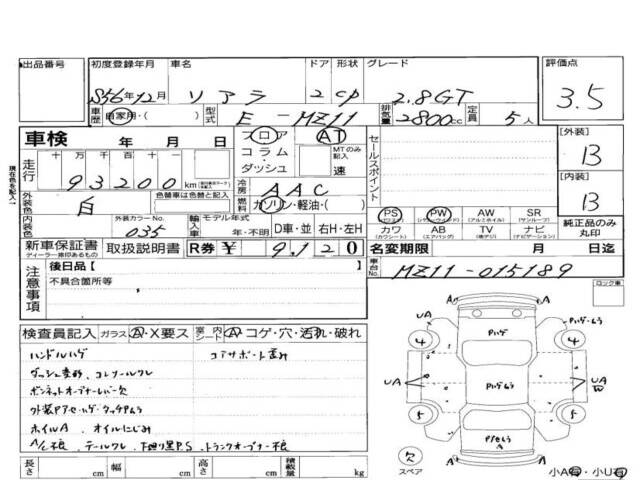 出品番号
初度登録年月 車名 ドア 形状 グレード 評価点
S56年12月 ソアラ 2 CP 2.8GT 3.5
車歴 自家用・( ) 型式 E-MZ11 排気量 2800cc 定員 5人
車検 年 月 日
フロア コラム・ダッシュ
AT MTのみ記入 速
走行 十万 万 千 百 十
93200 km
冷房 AAC
燃料 ガソリン・軽油・( )
外装色 白 色替車は色替と記入
内装色 外装カラーNo. 035
輸入車 モデル年式 年・不明 D車・並 右H・左H
新車保証書 取扱説明書 R券 ¥ 9,120
ディーラー捺印あるもの
セールスポイント
PS PW AW SR
(パワステ) (パワーウィンド) (アルミホイル) (サンルーフ)
カワ AB TV ナビ
(カワシート) (エアバッグ) (地デジ) (ナビゲーション)
[外装] B
[内装] B
純正品のみ丸印
名変期限 月 日迄
車台No. MZ11-015189
現在色を記入
注意事項
後日品【 】
不具合箇所等
ロック車
検査員記入 ガラス A・X要ス 室内 シート A・コゲ・穴・汚れ・破れ
ハンドルハゲ コアサポート歪み
ダッシュ変形、コンソールワレ
ボンネットオープナーレバー欠
外装Pアセ・ハゲ・タッチPムラ
ホイルA、オイルにじみ
A/C不良、テールワレ、下廻り黒P.S、トランクオープナー不良
長さ cm 幅 cm 高さ cm 積載量 kg
A A
UA Pハゲ Pハゲ・ムラ UA
4 4
UA Pハゲムラ UA W
5 5
PアセムラA
欠 スペア
A A
小A有・小U有